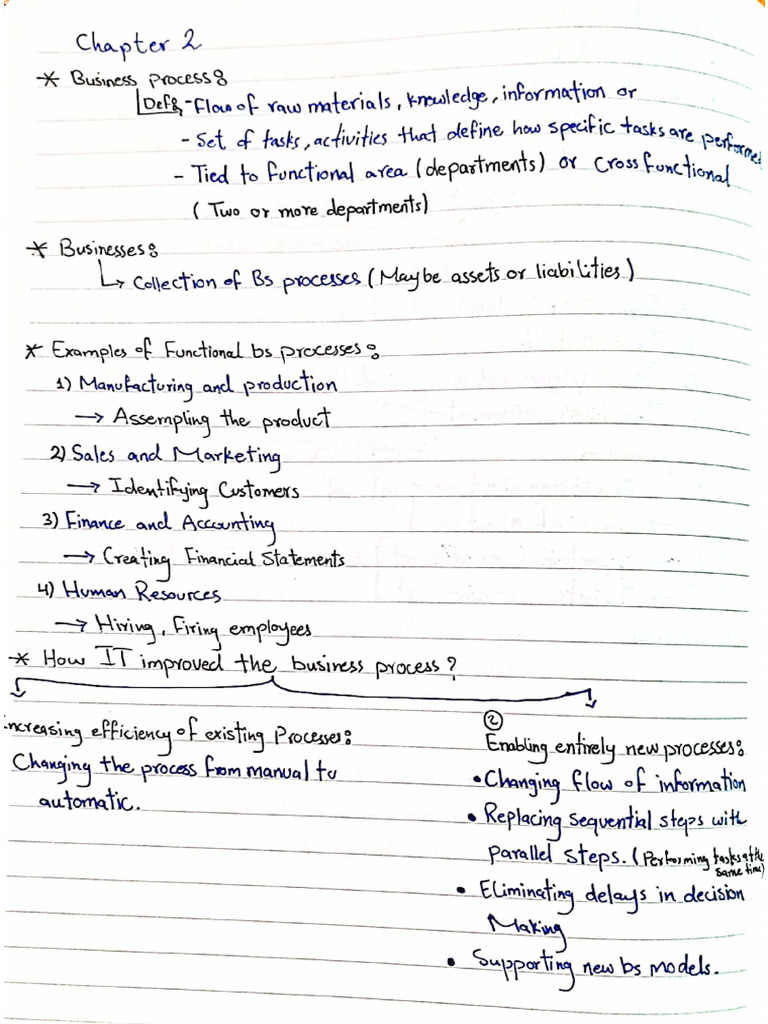 Chapter 2
* Business process:
Def: - Flow of raw materials, knowledge, information or
- Set of tasks, activities that define how specific tasks are performed
- Tied to functional area (departments) or cross functional
(Two or more departments)
* Businesses:
↳ Collection of Bs processes (Maybe assets or liabilities)
* Examples of Functional bs processes:
1) Manufacturing and production
→ Assempling the product
2) Sales and Marketing
→ Identifying Customers
3) Finance and Accounting
→ Creating Financial Statements
4) Human Resources
→ Hiring, Firing employees
* How IT improved the business process?
Increasing efficiency of existing Processes:
Changing the process from manual to
automatic.
②
Enabling entirely new processes:
• Changing flow of information
• Replacing sequential steps with
parallel steps. (Performing tasks at the
same time)
• Eliminating delays in decision
Making
• Supporting new bs models.